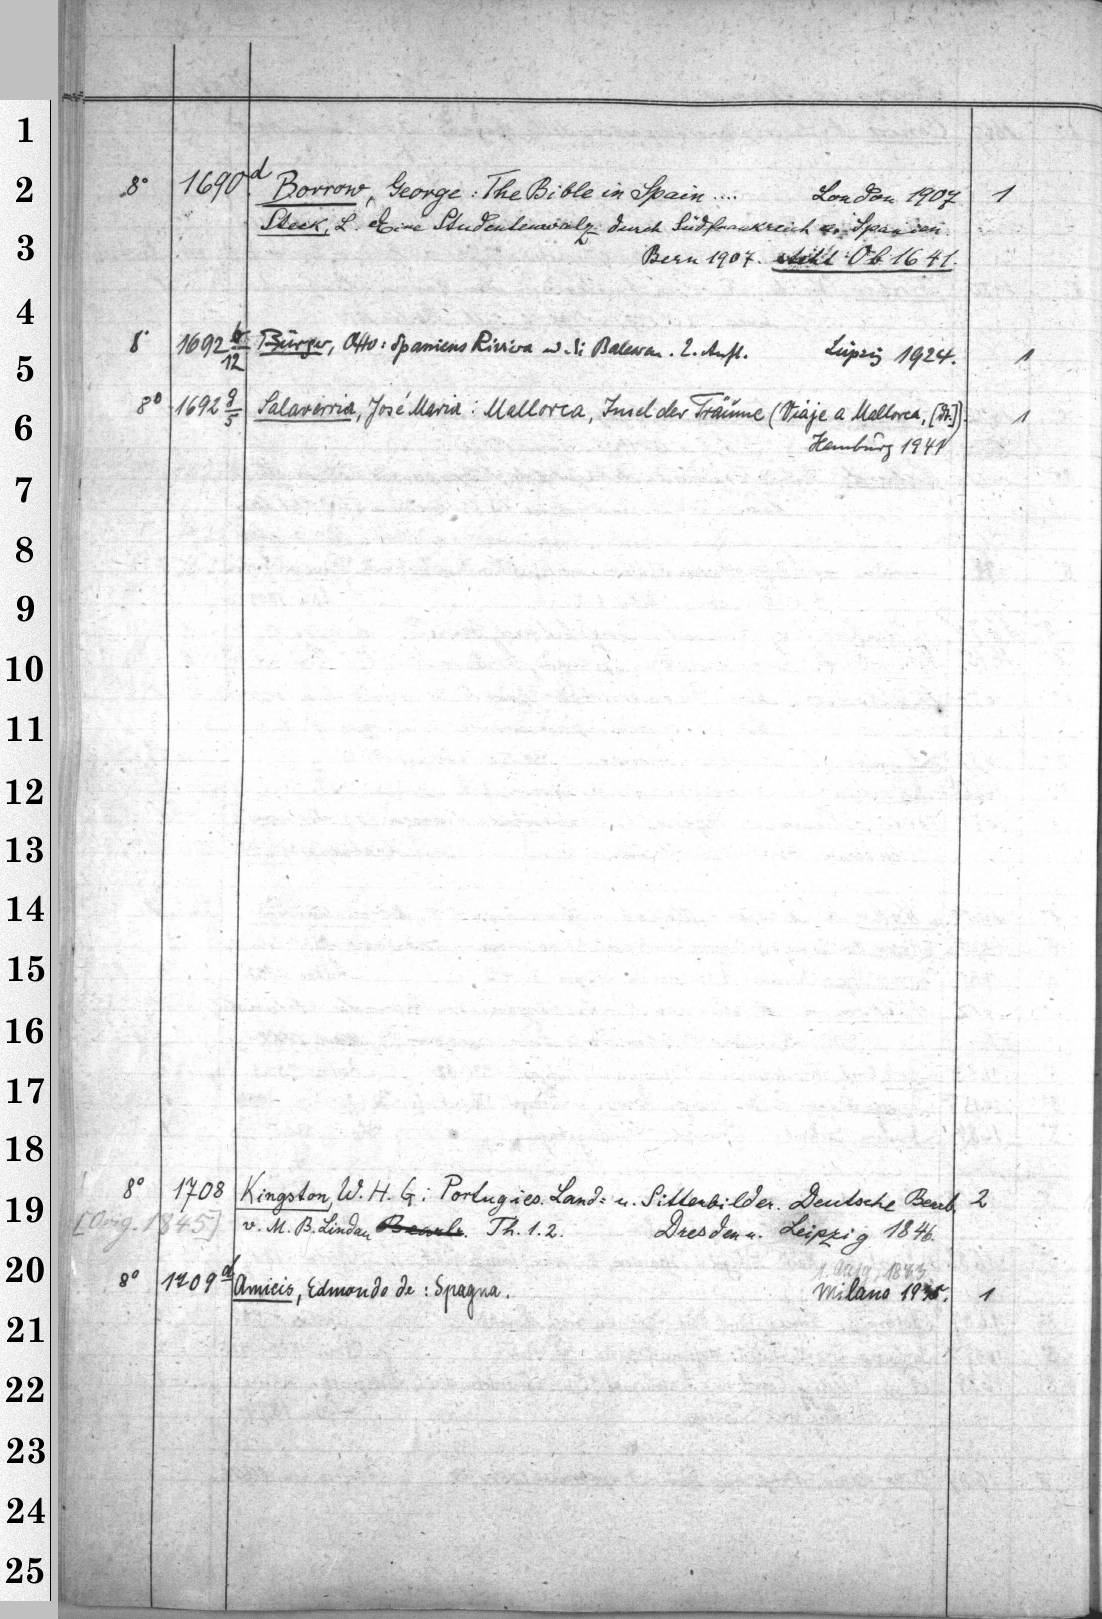 1
2
3
4
5
6
7
8
9
10
11
12
13
14
15
16
17
18
19
20
21
22
23
24
25
8° 1690 d Borrow, George: The Bible in Spain .... London 1907 1
Steck, L. Eine Studentenwalz durch Südfrankreich u. Spanien.
Bern 1907. steht Ob 1641.
8° 1692 b/12 Bürger, Otto: Spaniens Riviera u. di Balearen. 2. Aufl. Leipzig 1924. 1
8° 1692 g/5 Salaverria, José Maria: Mallorca, Insel der Träume (Viaje a Mallorca, [dt.]). 1
Hamburg 1941
8° 1708 Kingston, W. H. G.: Portugies. Land= u. Sittenbilder. Deutsche Bearb. 2
[Orig. 1845] v. M. B. Lindau Th. 1.2. Dresden u. Leipzig 1846.
1. Aufg. 1873.
8° 1709 d Amicis, Edmondo de: Spagna. Milano 1935. 1